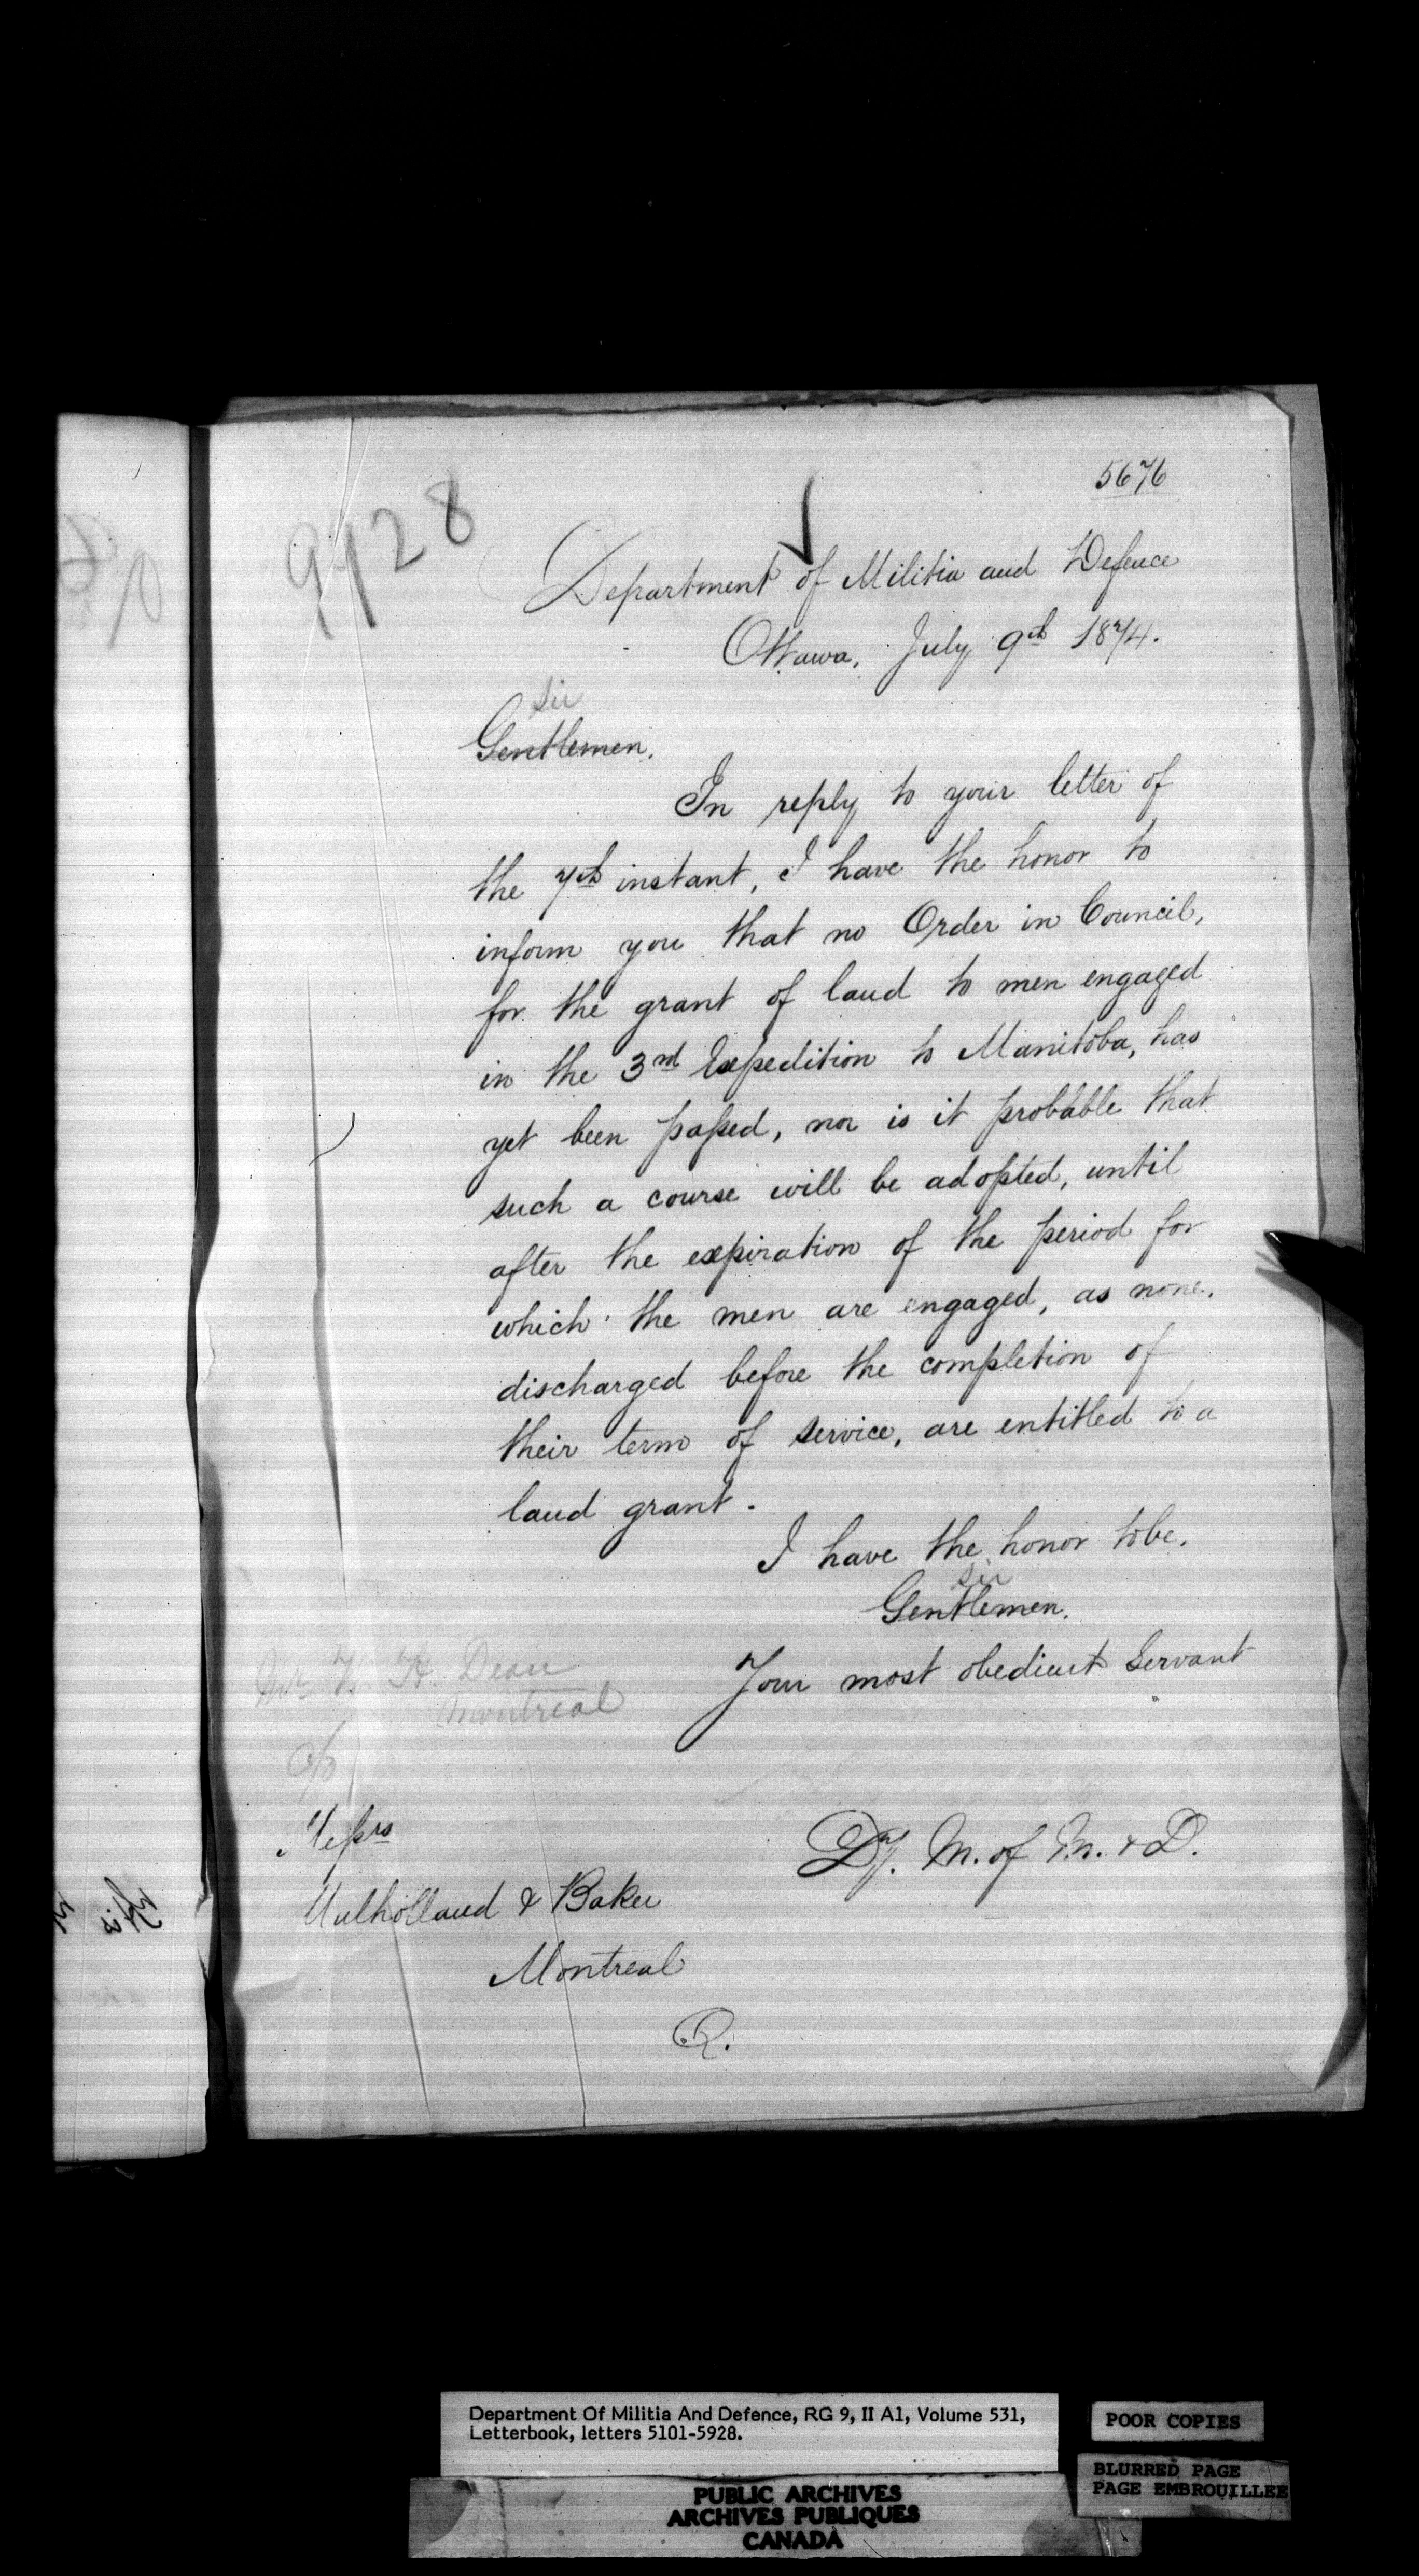 5676
9728
Department of Militia and Defence
Ottawa, July 9th 1874.
Sir
Gentlemen.
In reply to your letter of
the 7th instant, I have the honor to
inform you that no Order in Council,
for the grant of land to men engaged
in the 3rd Expedition to Manitoba, has
yet been passed, nor is it probable that
such a course will be adopted, until
after the expiration of the period for
which the men are engaged, as none,
discharged before the completion of
their term of service, are entitled to a
land grant.
I have the honor to be,
Sir
Gentlemen.
Your most obedient Servant
Mr H. Dean
Montreal
c/o
Messrs
Mulholland & Baker
Montreal
Q.
Dy. M. of M. & D.
Department Of Militia And Defence, RG 9, II A1, Volume 531,
Letterbook, letters 5101-5928.
POOR COPIES
BLURRED PAGE
PAGE EMBROUILLEE
PUBLIC ARCHIVES
ARCHIVES PUBLIQUES
CANADA